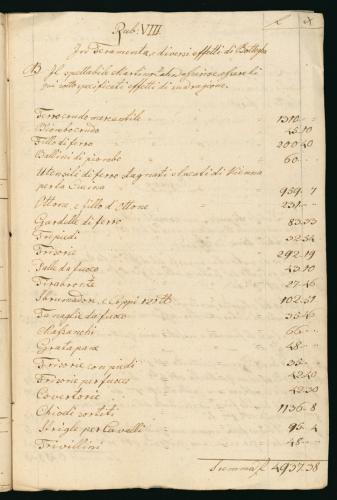 Rub: VIII.
Ferramenta, e diversi effetti di Bottega
Il spettabile Martino
qui sotto specificati effetti di sua ragione.
Ferro crudo mercantile 1310
Piombo crudo 45.10
Fillo di ferro 200.40
Ballini di piombo 60
Utensili di ferro di Vienna
per la Cucina 959.7
Ottone, e fillo d'Ottone 231
Gardelle di ferro 83.33
Tripiedi 32.54
Frisorie 292.19
Palle da fuoco 43.10
27.46
e Coppi 102.51
Tanaglie da fuoco 35.46
66
Grata pane 48
Frisorie con piedi 35
Frisorie per fuoco 42.40
Covertorie 42.30
Chiodi sortiti 1136.8
Strigle per Cavalli 95.4
Trivillini 48
Summa f. 4937.38